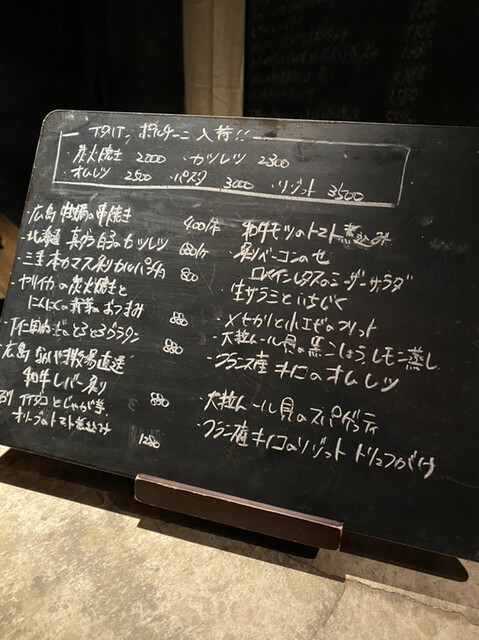 イタリア、ポルチーニ 入荷!!
・炭火焼き 2200 ・カツレツ 2300
・オムレツ 2500 ・パスタ 3000 ・リゾット 3500
・広島 牡蠣の串焼き 400/本
・北海道 真ダラ白子のカツレツ 680/ケ
・三重 本カマス炙りカルパッチョ 800
・ヤリイカの炭火焼きと
にんにくの青芽のおつまみ 880
・下仁田ねぎのとろとろグラタン 880
・広島 なかやま牧場直送
和牛レバー炙り 880
イイダコとじゃが芋
オリーブのトマト煮込み 1280
和牛モツのトマト煮込み
炙りベーコンのせ
ロメインレタスのシーザーサラダ
・生サラミといちじく
・メヒカリと小エビのフリット
・大粒ムール貝の黒こしょうレモン蒸し
・フランス産キノコのオムレツ
・大粒ムール貝のスパゲッティ
・フランス産キノコのリゾット トリュフがけ